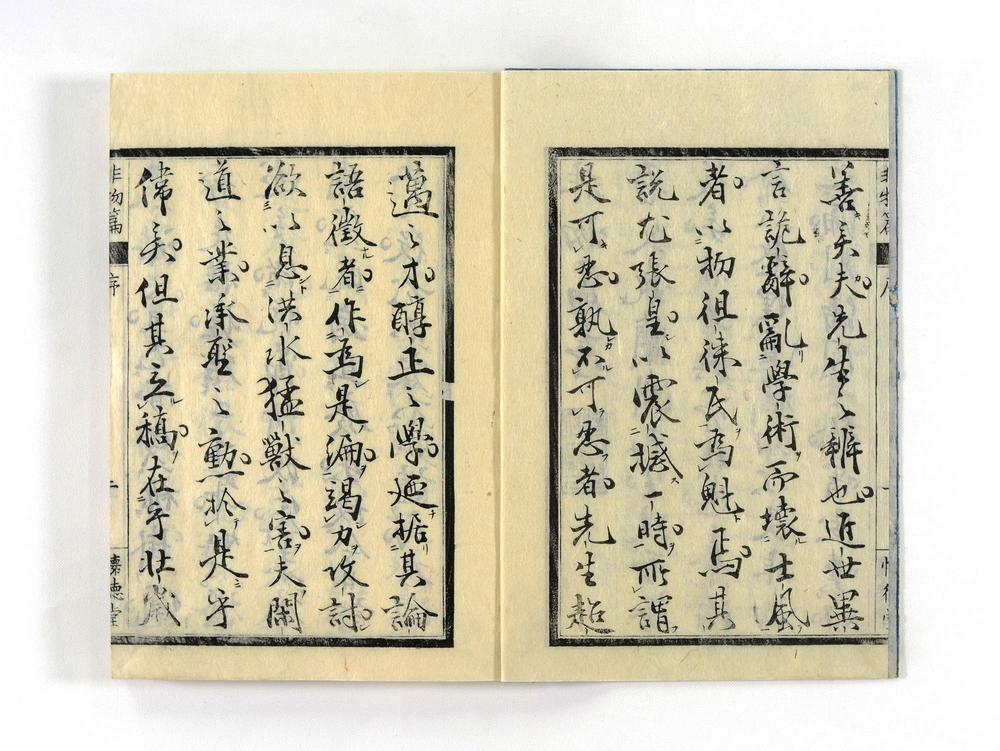 善矣夫先生之辨也近世異
言詭辭亂學術而壞士風
者以物徂徠氏為魁焉其
說尤張皇以震撼一時所謂
是可忍孰不可忍者先生超
邁之才醇正之學廼据其論
語徵者作為是編竭力攻討
欲以息洪水猛獸之害夫閑
道之業承聖之勲於是乎
偉矣但其立稿在乎壯歲
非物篇 序 二 懷德堂